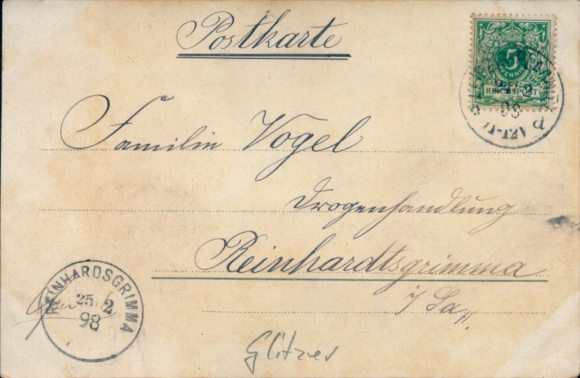 Postkarte
5
REICHSPOST
98
Familie Vogel
Drogenhandlung
Reinhardtsgrimma
i/Sa.
REINHARDSGRIMMA
25 2
98
Glitzer